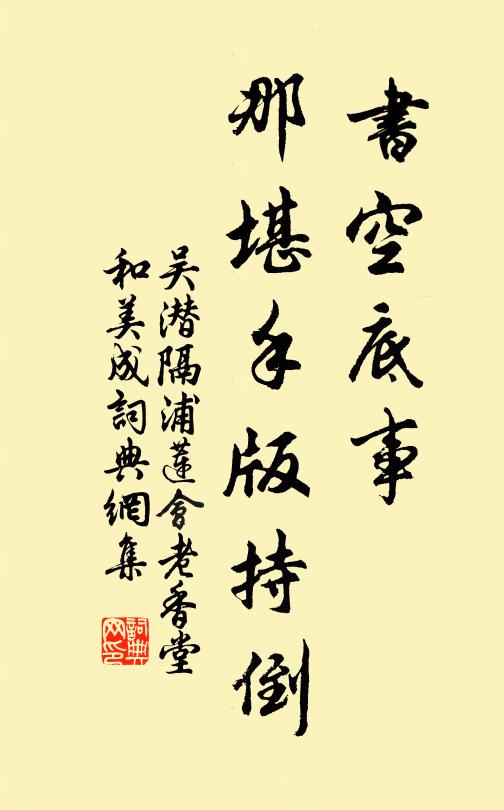 書空底事
那堪手版持倒
吴潜隔浦蓮會老香堂
和美成詞典網集
詞典
网印